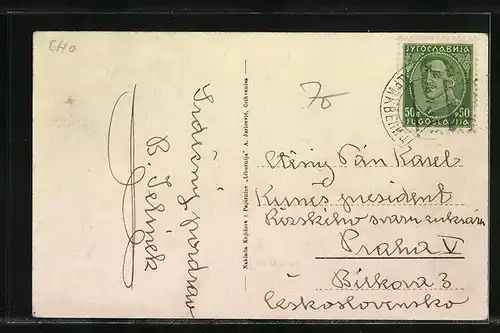 CHO
Srdečný pozdrav
B. Jelínek
Naklada Knjižare i Papirnice „Liburnija" A. Jačković, Crikvenica
70
ЈУГОСЛАВИЈА
50 50
JUGOSLAVIJA
Ctěný Pán Karel
Kuneš president
Říšského svazu cukrářů
Praha V
Bílkova 3
Československo